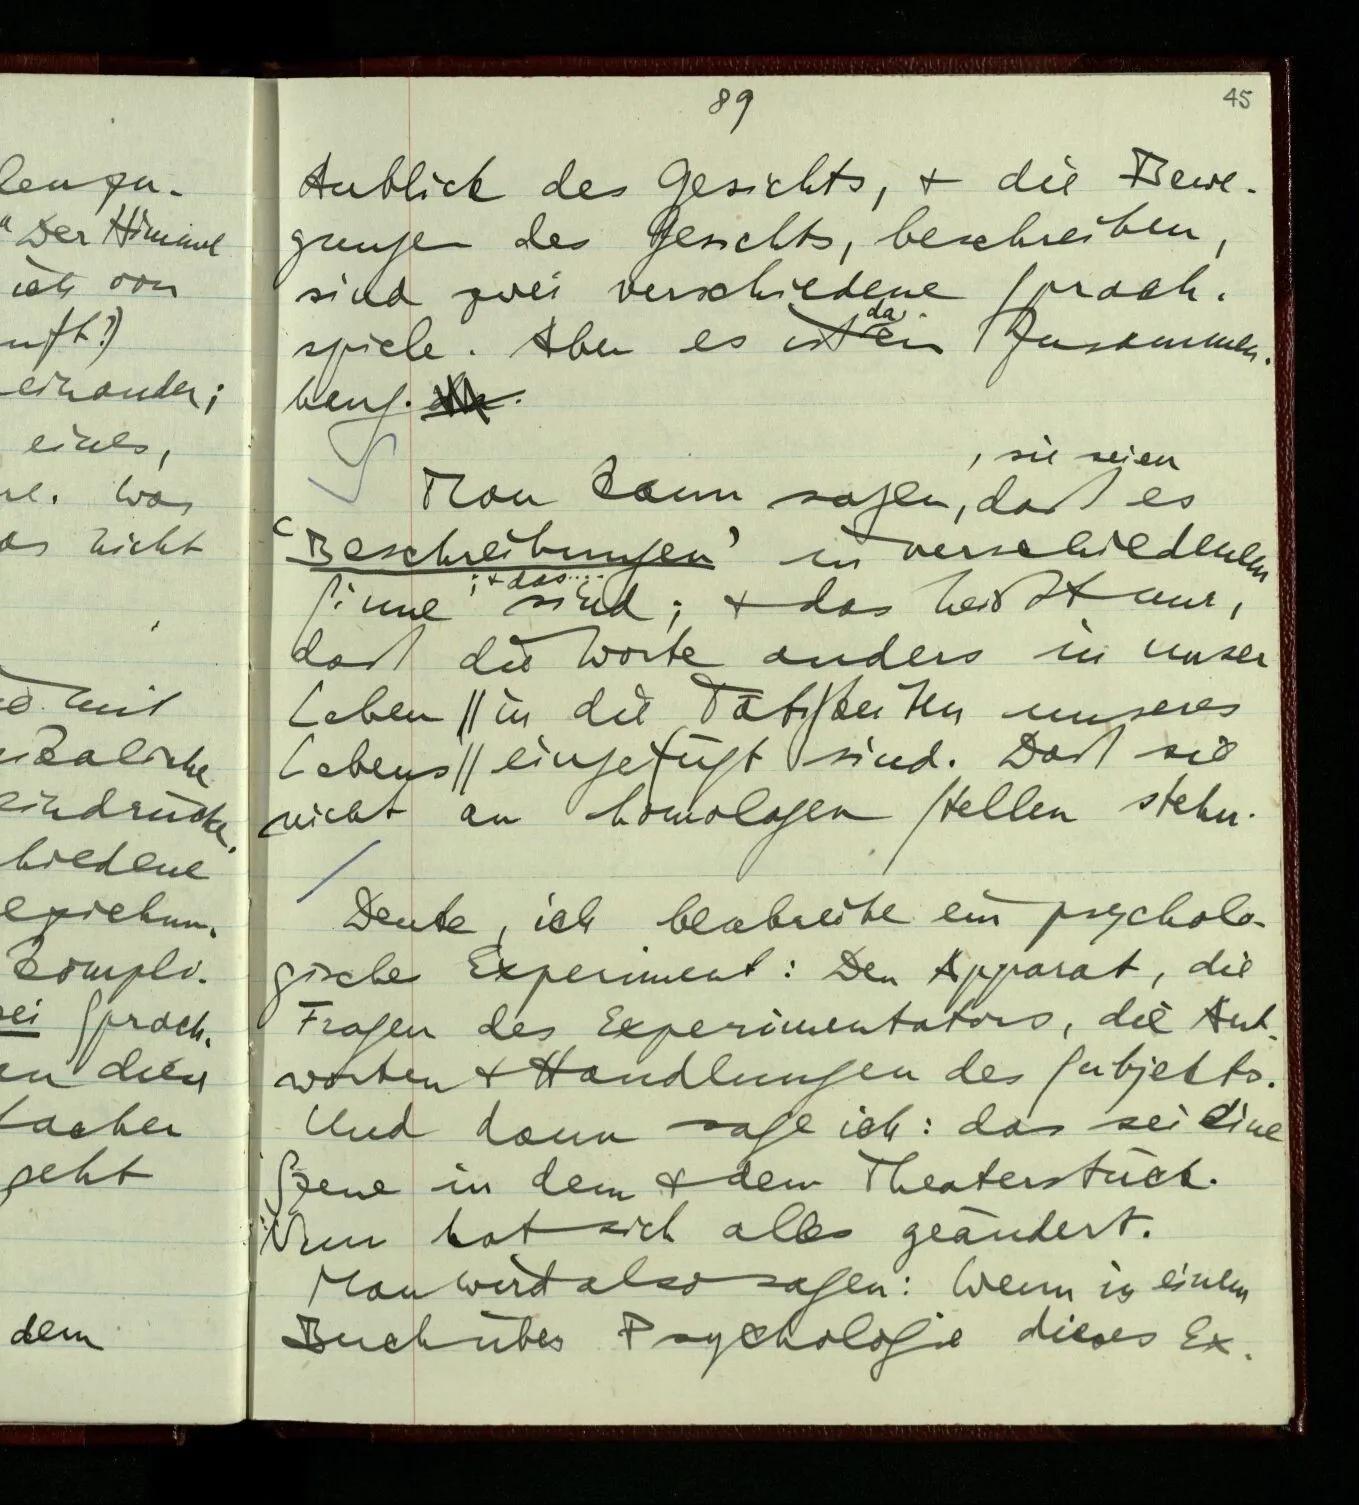 89
45
Anblick des Gesichts, + die Bewe-
gungen des Gesichts, beschreiben,
sind zwei verschiedene Sprach-
da
spiele. Aber es ist ein Zusammen-
hang.
, sie seien
Man kann sagen, daß es
‘Beschreibungen’ in verschiedenem
; + das....
Sinne sind; + das heißt nur,
daß die Worte anders in unser
Leben || in die Tätigkeiten unseres
Lebens || eingefügt sind. Daß sie
nicht an homologen Stellen stehn.
Denke, ich beschreibe ein psycholo-
gisches Experiment: Den Apparat, die
Fragen des Experimentators, die Ant-
worten + Handlungen des Subjekts.
Und dann sage ich: das sei eine
Szene in dem + dem Theaterstück.
Nun hat sich alles geändert.
Man wird also sagen: Wenn in einem
Buch über Psychologie dieses Ex-
"Der Himmel
ich von
einander;
eines,
was
nicht
mit
eindrücke,
hiedene
kompli-
Sprach-
facher
geht
dem